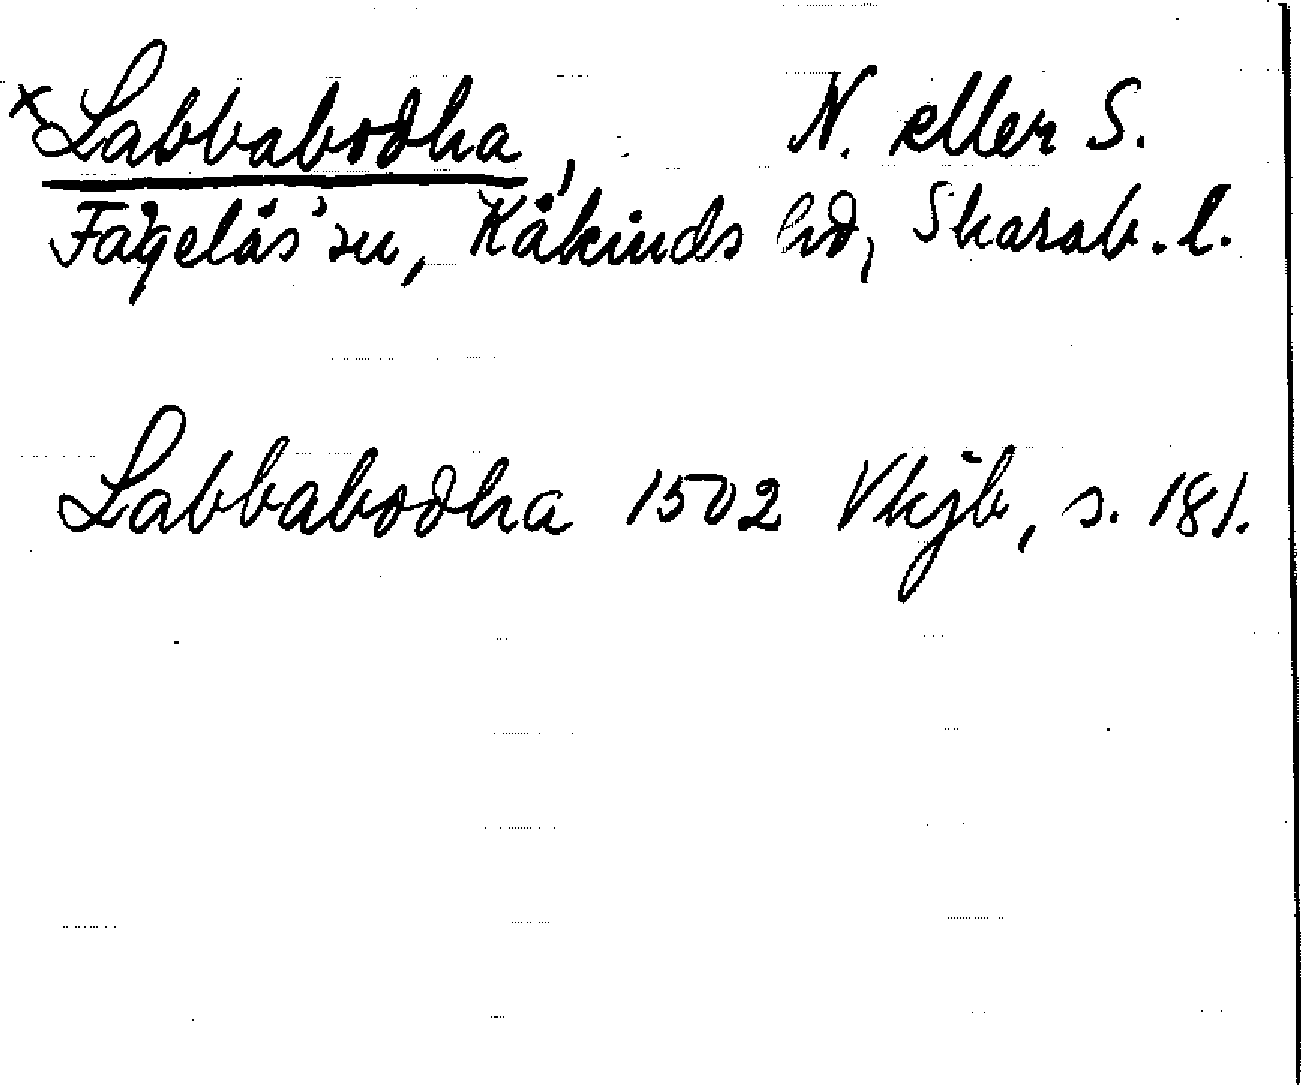 x Labbabodha, N. eller S.
Fågelås sn, Kåkinds hd, Skarab. l.
Labbabodha 1502 Vkjb, s. 181.